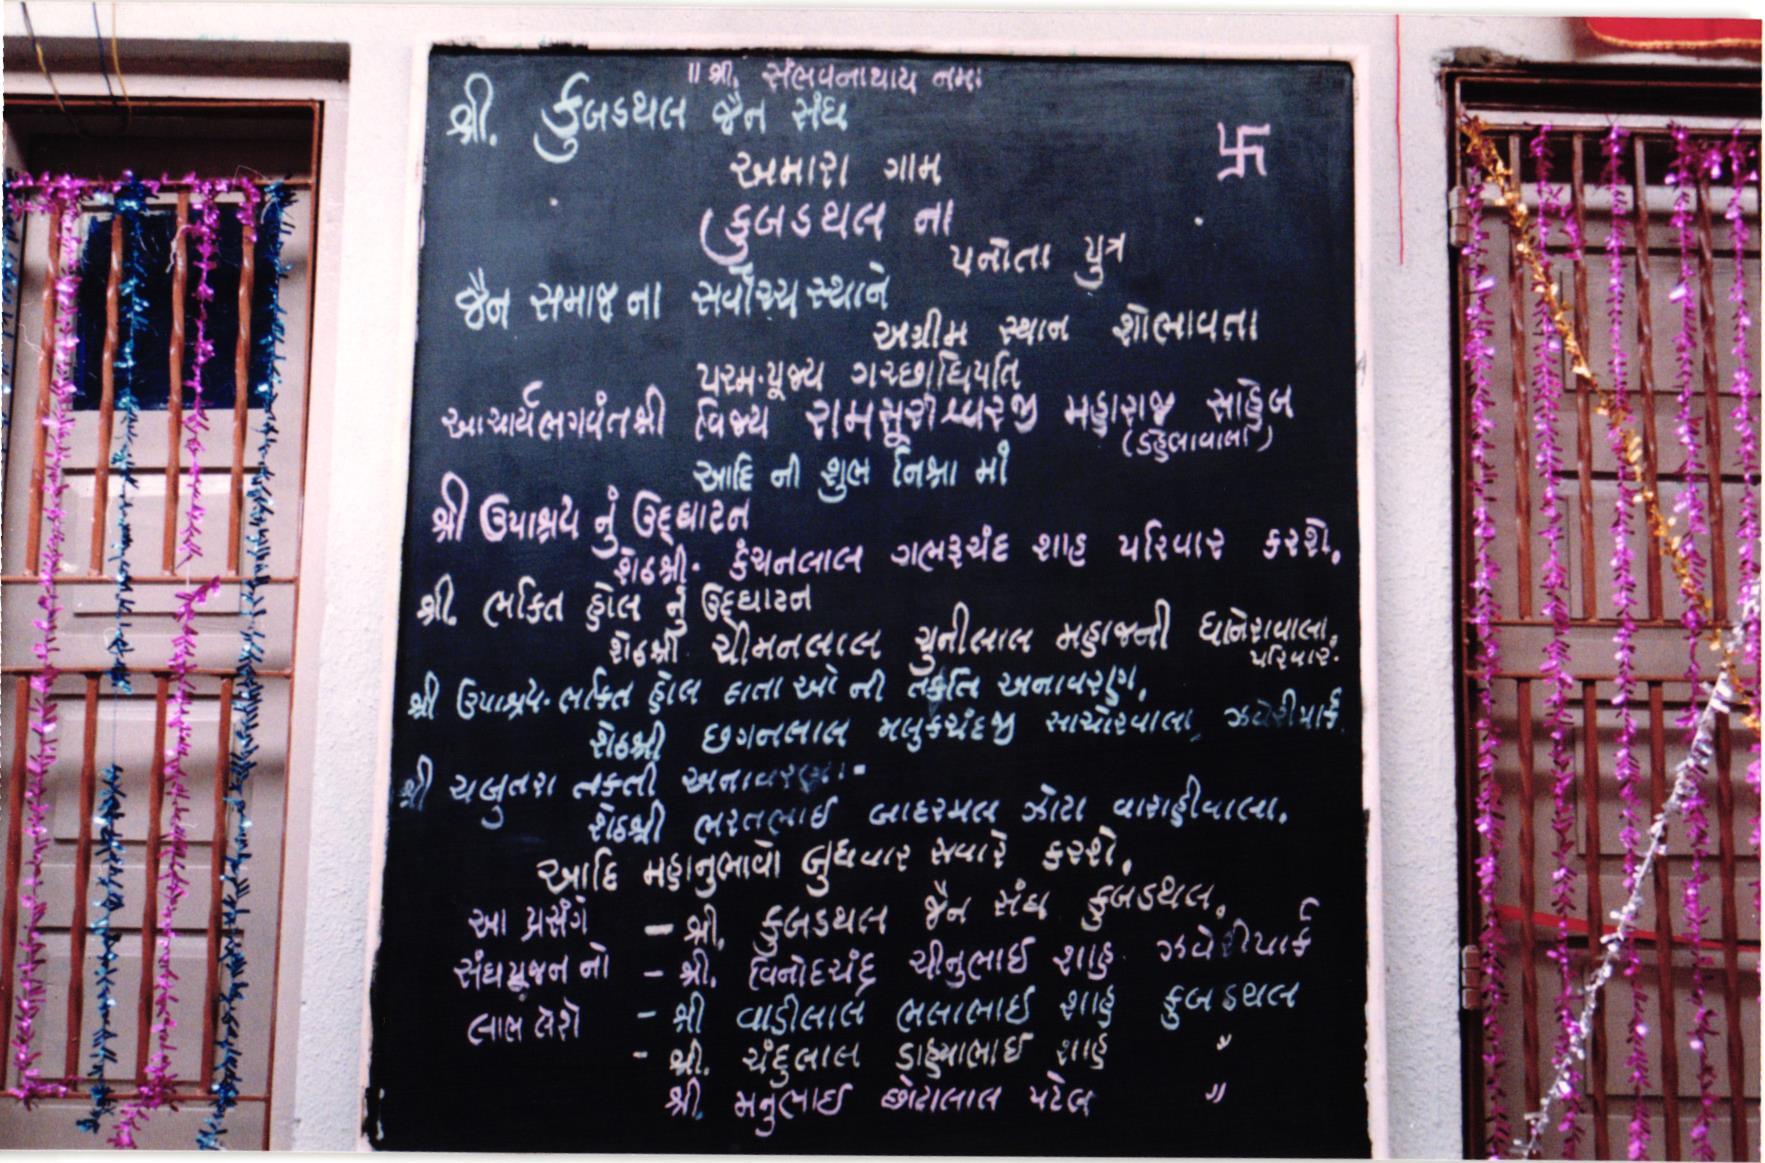 ॥ શ્રી. સંભવનાથાય નમઃ
શ્રી. કુબડથલ જૈન સંઘ
અમારા ગામ
કુબડથલ ના
પનોતા પુત્ર
જૈન સમાજ ના સર્વોચ્ચ સ્થાને
અગ્રીમ સ્થાન શોભાવતા
પરમ.પૂજ્ય ગચ્છાધિપતિ
આચાર્યભગવંતશ્રી વિજય રામસૂરીશ્વરજી મહારાજ સાહેબ
(ડહેલાવાલા)
આદિ ની શુભ નિશ્રા માં
શ્રી ઉપાશ્રય નું ઉદ્ઘાટન
શેઠશ્રી. કંચનલાલ ગભરૂચંદ શાહ પરિવાર કરશે.
શ્રી. ભકિત હોલ નું ઉદ્ઘાટન
શેઠશ્રી ચીમનલાલ ચુનીલાલ મહાજની ધાનેરાવાલા.
પરિવાર.
શ્રી ઉપાશ્રય. ભકિત હોલ દાતા ઓ ની તકતિ અનાવરણ.
શેઠશ્રી છગનલાલ મલુકચંદજી સાચોરવાલા, ઝવેરીપાર્ક
શ્રી ચબુતરા તકતી અનાવરણ.
શેઠશ્રી ભરતભાઈ બાદરમલ ઝોટા વારાહીવાલા.
આદિ મહાનુભાવો બુધવાર સવારે કરશે.
આ પ્રસંગે – શ્રી. કુબડથલ જૈન સંઘ કુબડથલ.
સંઘપૂજન નો – શ્રી. વિનોદચંદ્ર ચીનુભાઈ શાહ ઝવેરીપાર્ક
લાભ લેશે – શ્રી વાડીલાલ ભલાભાઈ શાહ કુબડથલ
– શ્રી. ચંદુલાલ ડાહ્યાભાઈ શાહ "
શ્રી મનુભાઈ છોટાલાલ પટેલ "